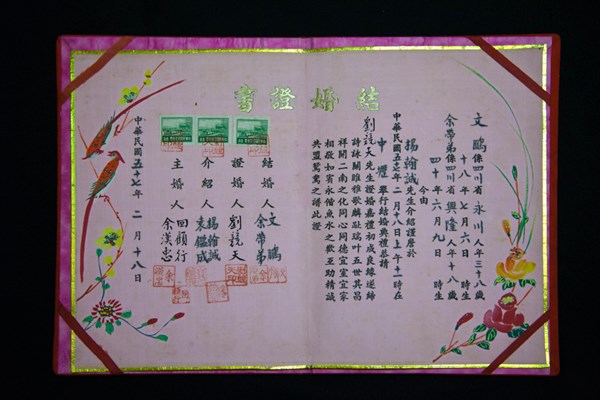 結婚證書
文鵬係四川省永川人年三十八歲
十八年七月六日 時生
余帶弟係四川省興隆人年十八歲
四十年六月九日 時生
今由
楊翰誠先生介紹謹詹於
中華民國五十七年二月十八日上午十一時在
中壢舉行結婚典禮恭請
劉競天先生證婚嘉禮初成良緣遂締
詩詠關雎雅歌麟趾瑞叶五世其昌
祥開二南之化同心同德宜室宜家
相敬如賓永偕魚水之歡互助精誠
共盟鴛鴦之誓此證
結婚人 文鵬
余帶弟
證婚人 劉競天
介紹人 楊翰誠
袁鑑成
主婚人 回顧行
余漢忠
中華民國五十七年二月十八日